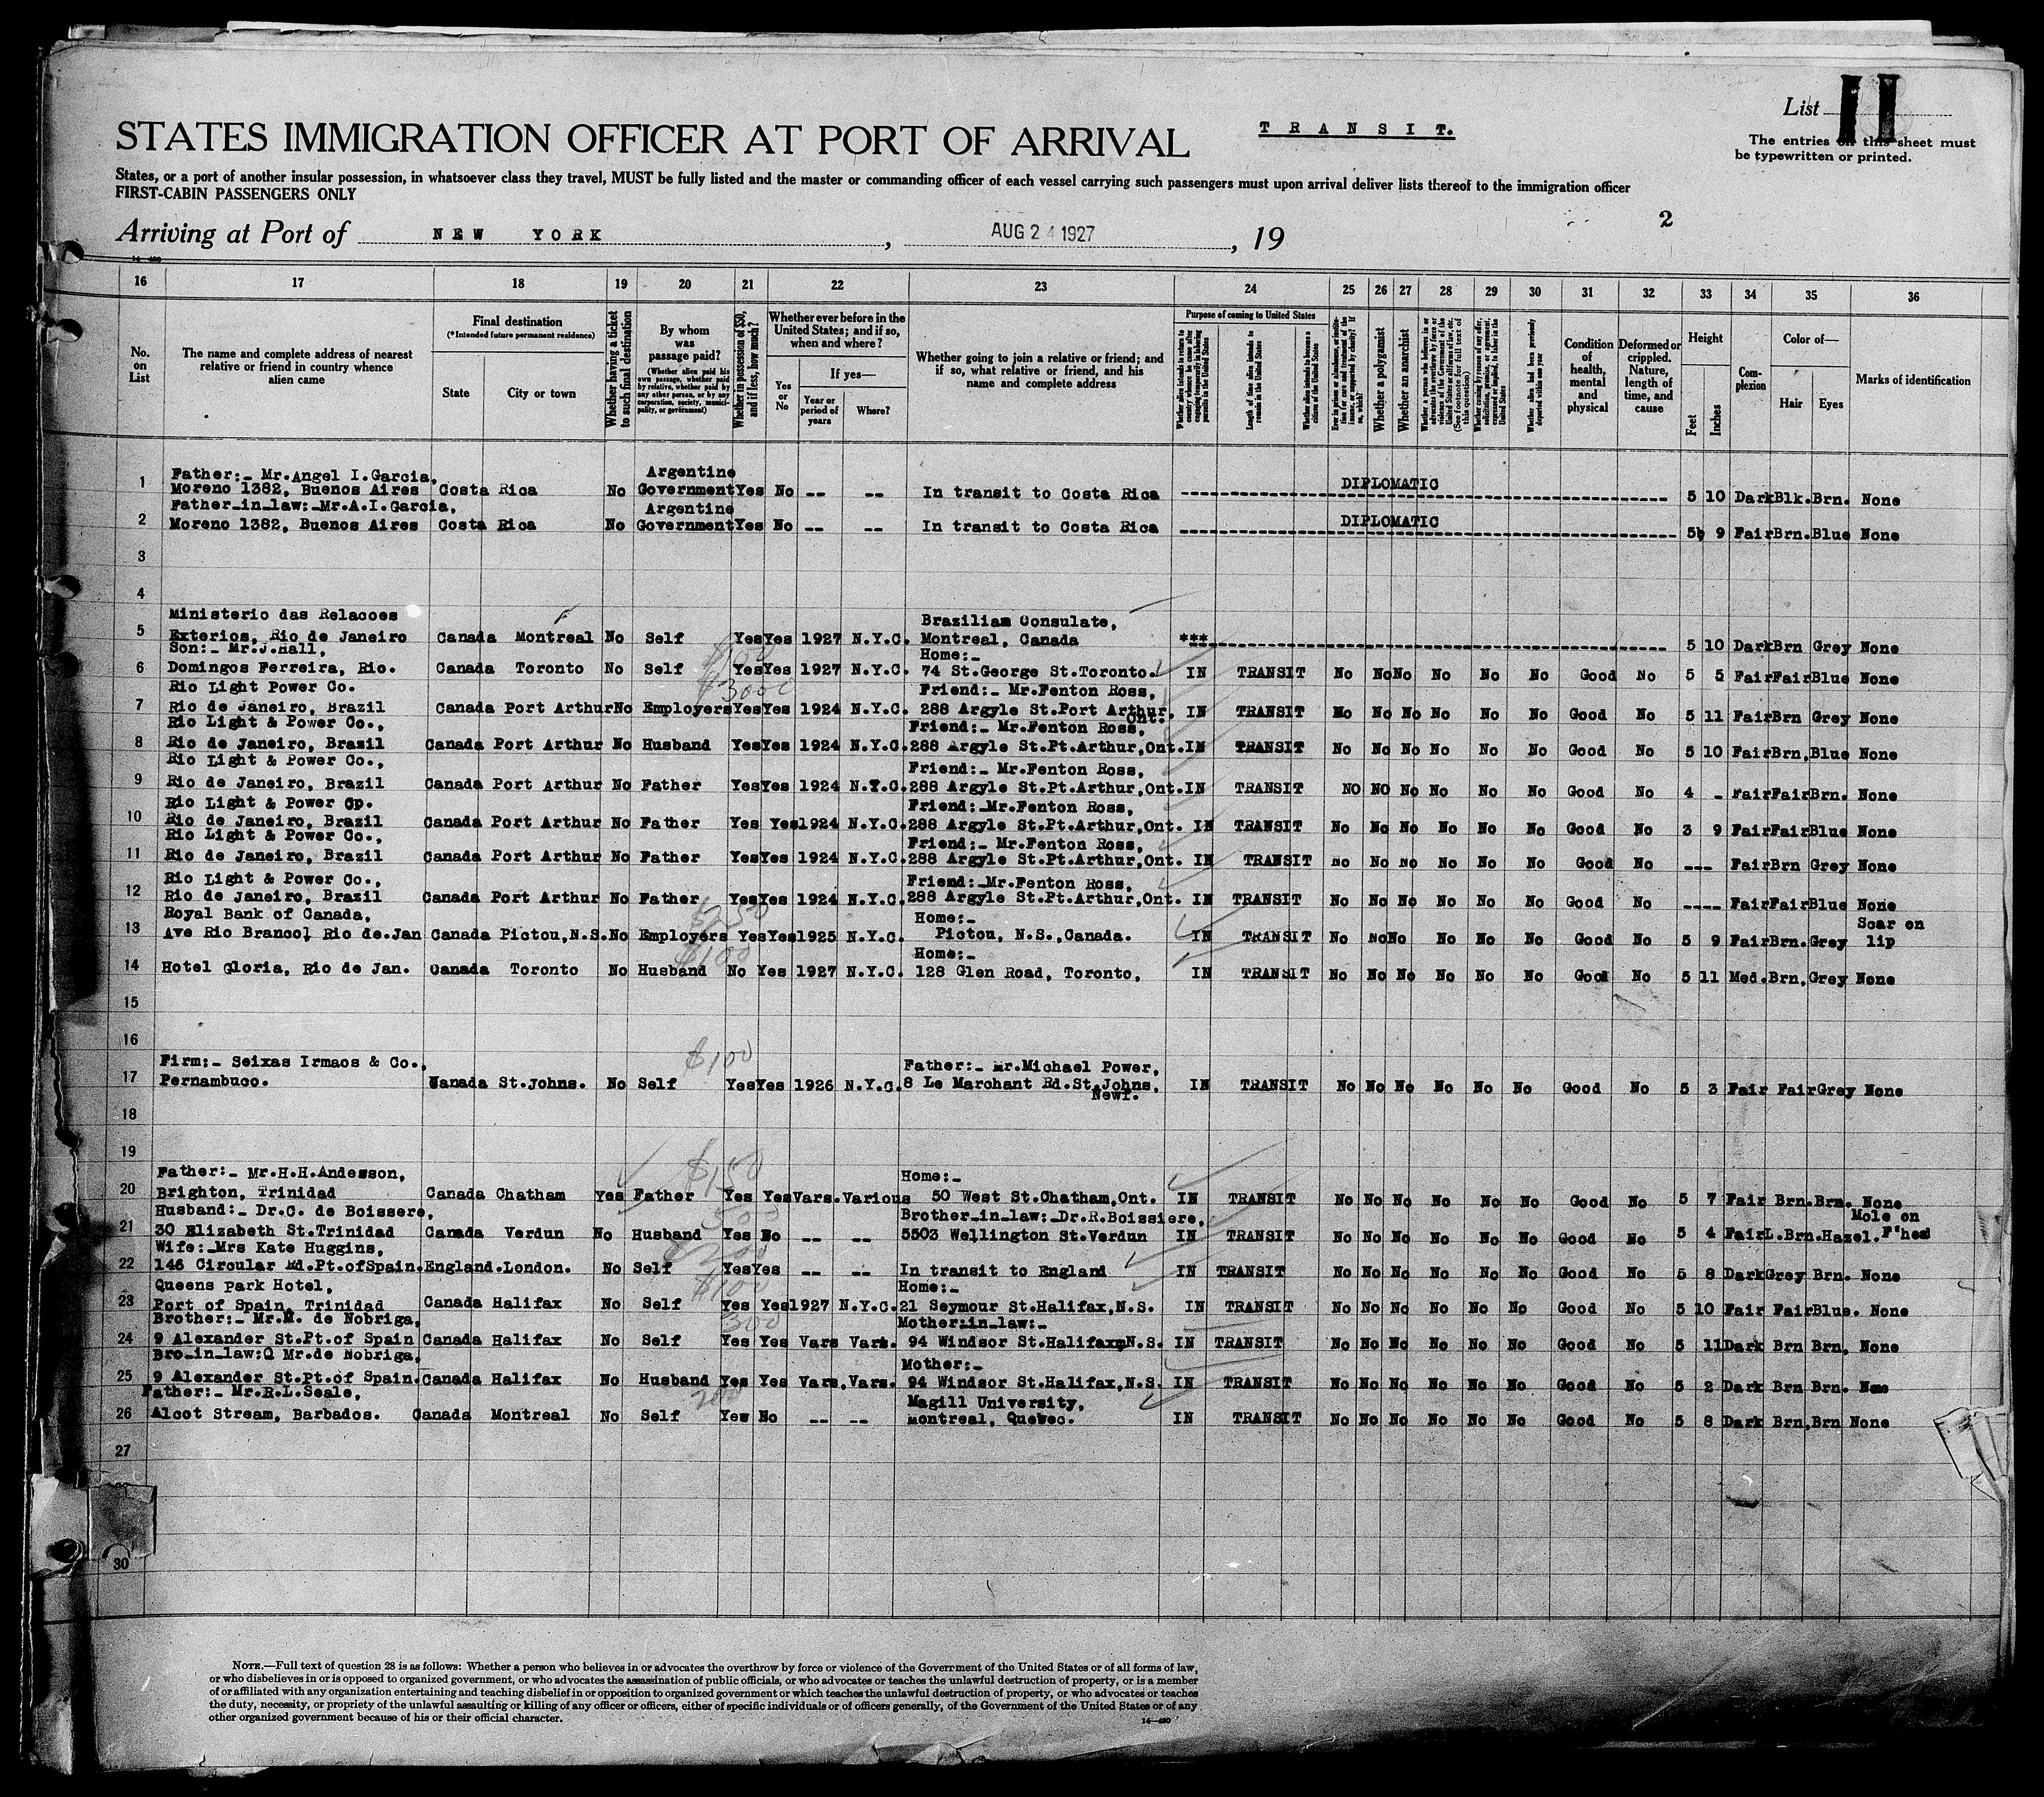 List 11
TRANSIT.
STATES IMMIGRATION OFFICER AT PORT OF ARRIVAL
The entries on this sheet must
be typewritten or printed.
States, or a port of another insular possession, in whatsoever class they travel, MUST be fully listed and the master or commanding officer of each vessel carrying such passengers must upon arrival deliver lists thereof to the immigration officer
FIRST-CABIN PASSENGERS ONLY
2
Arriving at Port of NEW YORK, AUG 24 1927, 19
16 17 18 19 20 21 22 23 24 25 26 27 28 29 30 31 32 33 34 35 36
No. on List
The name and complete address of nearest relative or friend in country whence alien came
Final destination
(*Intended future permanent residence)
State
City or town
Whether having a ticket to such final destination
By whom was passage paid?
(Whether alien paid his own passage, whether paid by relative, whether paid by any other person, or by any corporation, society, municipality, or government)
Whether in possession of $50, and if less, how much?
Whether ever before in the United States; and if so, when and where?
Yes or No
If yes—
Year or period of years
Where?
Whether going to join a relative or friend; and if so, what relative or friend, and his name and complete address
Purpose of coming to United States
Length of time alien intends to remain in the United States
Whether alien intends to become a citizen of the United States
Whether a polygamist
Whether an anarchist
Condition of health, mental and physical
Deformed or crippled. Nature, length of time, and cause
Height
Feet
Inches
Complexion
Color of—
Hair
Eyes
Marks of identification
Father:- Mr.Angel I.Garcia, Argentine DIPLOMATIC
1 Moreno 1382, Buenos Aires Costa Rica No Government Yes No -- -- In transit to Costa Rica 5 10 Dark Blk. Brn. None
Father-in-law:-Mr.A.I.Garcia, Argentine DIPLOMATIC
2 Moreno 1382, Buenos Aires Costa Rica No Government Yes No -- -- In transit to Costa Rica 5 9 Fair Brn. Blue None
3
4
Ministerio das Relacoes Brazilian Consulate,
5 Exterios, Rio de Janeiro Canada Montreal No Self Yes Yes 1927 N.Y.C. Montreal, Canada *** 5 10 Dark Brn Grey None
Son:- Mr.J.Hall, $100 Home:-
6 Domingos Ferreira, Rio. Canada Toronto No Self Yes Yes 1927 N.Y.C. 74 St.George St.Toronto. IN TRANSIT No No No No No No Good No 5 5 Fair Fair Blue None
Rio Light Power Co. $3000 Friend:- Mr.Fenton Ross,
7 Rio de Janeiro, Brazil Canada Port Arthur No Employers Yes Yes 1924 N.Y.C. 288 Argyle St.Port Arthur, Ont. IN TRANSIT No No No No No No Good No 5 11 Fair Brn Grey None
Rio Light & Power Co., Friend:- Mr.Fenton Ross,
8 Rio de Janeiro, Brazil Canada Port Arthur No Husband Yes Yes 1924 N.Y.C. 288 Argyle St.Pt.Arthur,Ont. IN TRANSIT No No No No No No Good No 5 10 Fair Brn, Blue None
Rio Light & Power Co., Friend:- Mr.Fenton Ross,
9 Rio de Janeiro, Brazil Canada Port Arthur No Father Yes Yes 1924 N.Y.C. 288 Argyle St.Pt.Arthur,Ont. IN TRANSIT NO NO No No No No Good No 4 - Fair Fair Brn. None
Rio Light & Power Cp. Friend:-Mr.Fenton Ross,
10 Rio de Janeiro, Brazil Canada Port Arthur No Father Yes Yes 1924 N.Y.C. 288 Argyle St.Pt.Arthur,Ont. IN TRANSIT No No No No No No Good No 3 9 Fair Fair Blue None
Rio Light & Power Co., Friend:- Mr.Fenton Ross,
11 Rio de Janeiro, Brazil Canada Port Arthur No Father Yes Yes 1924 N.Y.C. 288 Argyle St.Pt.Arthur,Ont. IN TRANSIT No No No No No No Good No --- Fair Brn Grey None
Rio Light & Power Co., Friend:-Mr.Fenton Ross,
12 Rio de Janeiro, Brazil Canada Port Arthur No Father Yes Yes 1924 N.Y.C. 288 Argyle St.Pt.Arthur,Ont. IN TRANSIT No No No No No No Good No ---- Fair Fair Blue None
Royal Bank of Canada, $250 Home:- Scar on
13 Ave Rio Branco, Rio de.Jan Canada Pictou,N.S. No Employers Yes Yes 1925 N.Y.C. Pictou, N.S.,Canada. IN TRANSIT No No No No No No Good No 5 9 Fair Brn. Grey lip
$100 Home:-
14 Hotel Gloria, Rio de Jan. Canada Toronto No Husband No Yes 1927 N.Y.C. 128 Glen Road, Toronto, IN TRANSIT No No No No No No Good No 5 11 Med. Brn, Grey None
15
16
Firm:- Seixas Irmaos & Co., $100 Father:- Mr.Michael Power,
17 Pernambuco. Canada St.Johns. No Self Yes Yes 1926 N.Y.C. 8 Le Marchant Rd.St.Johns, Newf. IN TRANSIT No No No No No No Good No 5 3 Fair Fair Grey None
18
19
Father:- Mr.H.H.Andesson, $150 Home:-
20 Brighton, Trinidad Canada Chatham Yes Father Yes Yes Vars. Various 50 West St.Chatham,Ont. IN TRANSIT No No No No No No Good No 5 7 Fair Brn. Brn. None
Husband:- Dr.C. de Boissere, 500 Brother-in-law:-Dr.R.Boissiere, Mole on
21 30 Elizabeth St.Trinidad Canada Verdun No Husband Yes No -- -- 5503 Wellington St.Verdun IN TRANSIT No No No No No No Good No 5 4 Fair L.Brn. Hazel. F'hed
Wife:-Mrs Kate Huggins, $200
22 146 Circular Rd.Pt.ofSpain. England. London. No Self Yes Yes -- -- In transit to England IN TRANSIT No No No No No No Good No 5 8 Dark Grey Brn. None
Queens park Hotel, $100 Home:-
23 Port of Spain, Trinidad Canada Halifax No Self Yes Yes 1927 N.Y.C. 21 Seymour St.Halifax,N.S. IN TRANSIT No No No No No No Good No 5 10 Fair Fair Blue. None
Brother:- Mr.M. de Nobriga, 300 Mother:in-law:-
24 9 Alexander St.Pt.of Spain Canada Halifax No Self Yes Yes Vars Vars. 94 Windsor St.Halifax,N.S. IN TRANSIT No No No No No No Good No 5 11 Dark Brn Brn, None
Bro-in-law:Q Mr.de Nobriga, Mother:-
25 9 Alexander St.Pt.of Spain. Canada Halifax No Husband Yes Yes Vars. Vars. 94 Windsor St.Halifax,N.S. IN TRANSIT No No No No No No Good No 5 2 Dark Brn Brn. None
Father:- Mr.R.L.Seale, 200 Magill University,
26 Alcot Stream, Barbados. Canada Montreal No Self Yes No -- -- Montreal, Quebec. IN TRANSIT No No No No No No Good No 5 8 Dark Brn, Brn None
27
30
NOTE.—Full text of question 28 is as follows: Whether a person who believes in or advocates the overthrow by force or violence of the Government of the United States or of all forms of law,
or who disbelieves in or is opposed to organized government, or who advocates the assassination of public officials, or who advocates or teaches the unlawful destruction of property, or is a member
of or affiliated with any organization entertaining and teaching disbelief in or opposition to organized government or which teaches the unlawful destruction of property, or who advocates or teaches
the duty, necessity, or propriety of the unlawful assaulting or killing of any officer or officers, either of specific individuals or of officers generally, of the Government of the United States or of any
other organized government because of his or their official character.